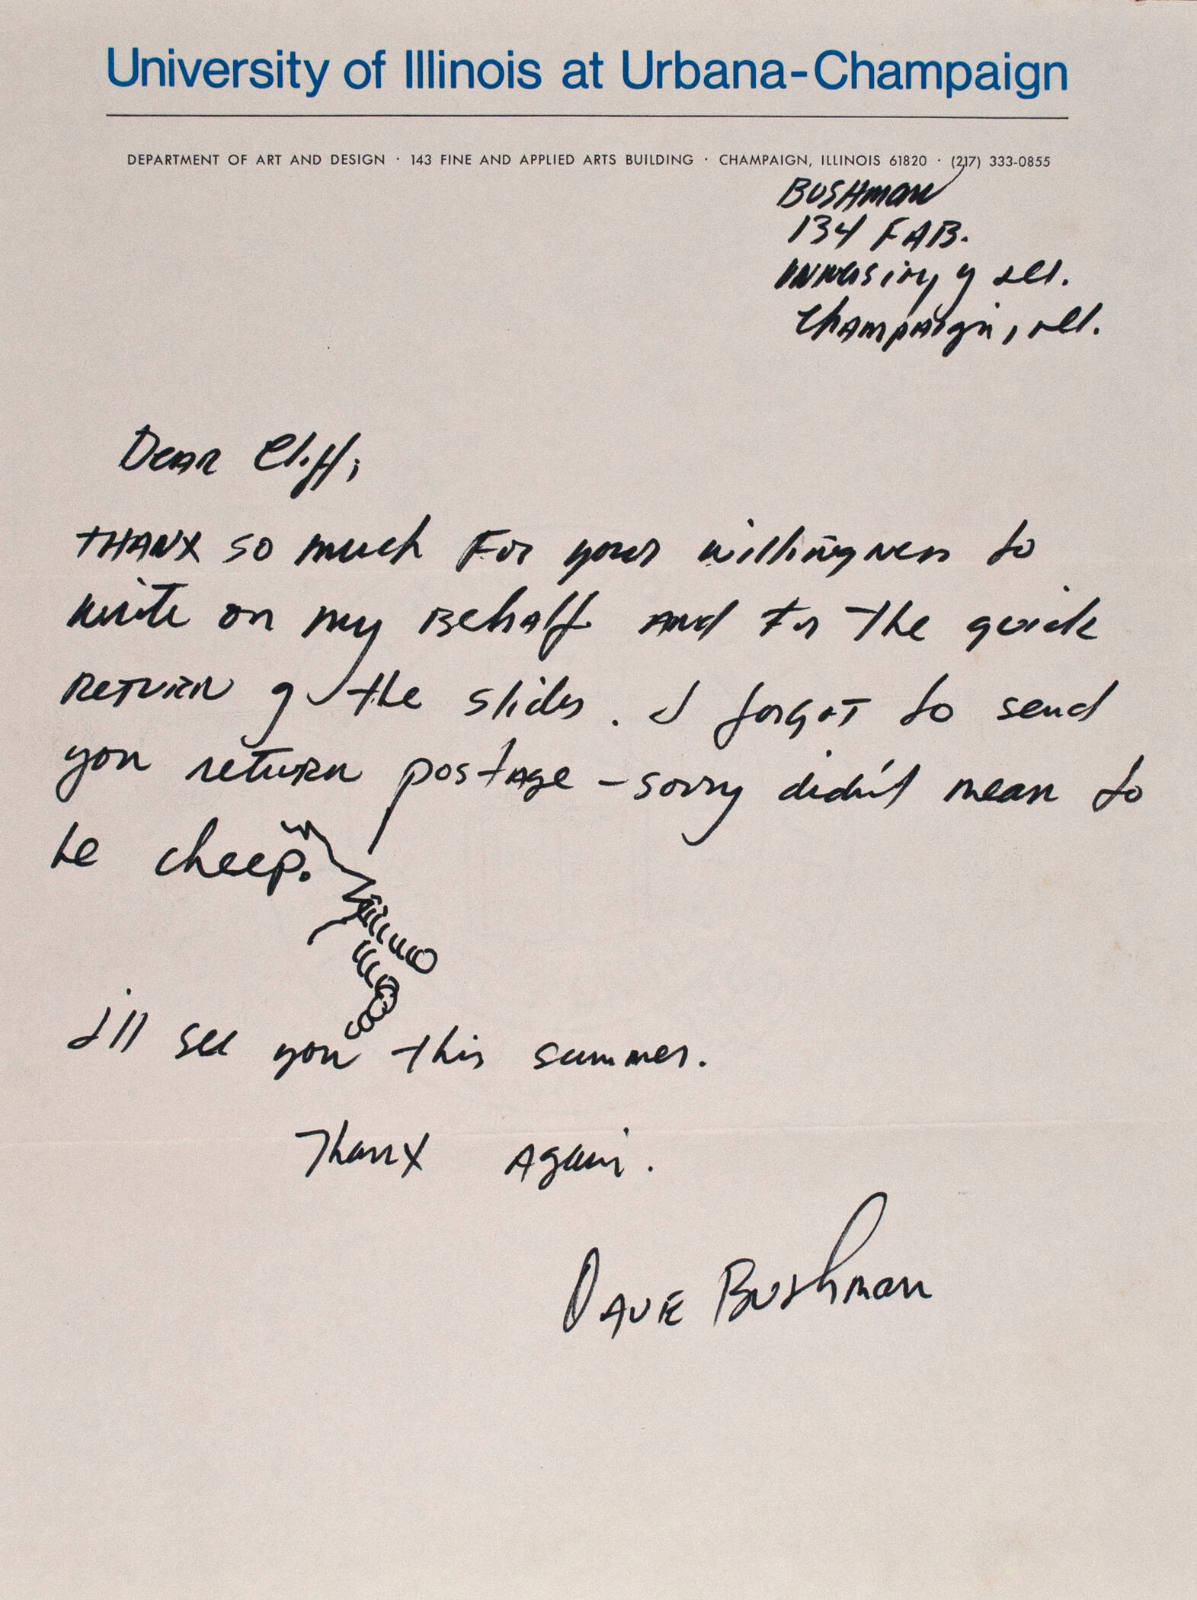 University of Illinois at Urbana-Champaign
DEPARTMENT OF ART AND DESIGN · 143 FINE AND APPLIED ARTS BUILDING · CHAMPAIGN, ILLINOIS 61820 · (217) 333-0855
BUSHMAN
134 FAB.
University of Ill.
Champaign, Ill.
Dear Cliff;
THANX so much For your willingness to
write on my Behalf and for the quick
RETURN of the slides. I forgot to send
you return postage – sorry didn't mean to
be cheep.
I'll see you this summer.
Thanx Again.
DAVE Bushman